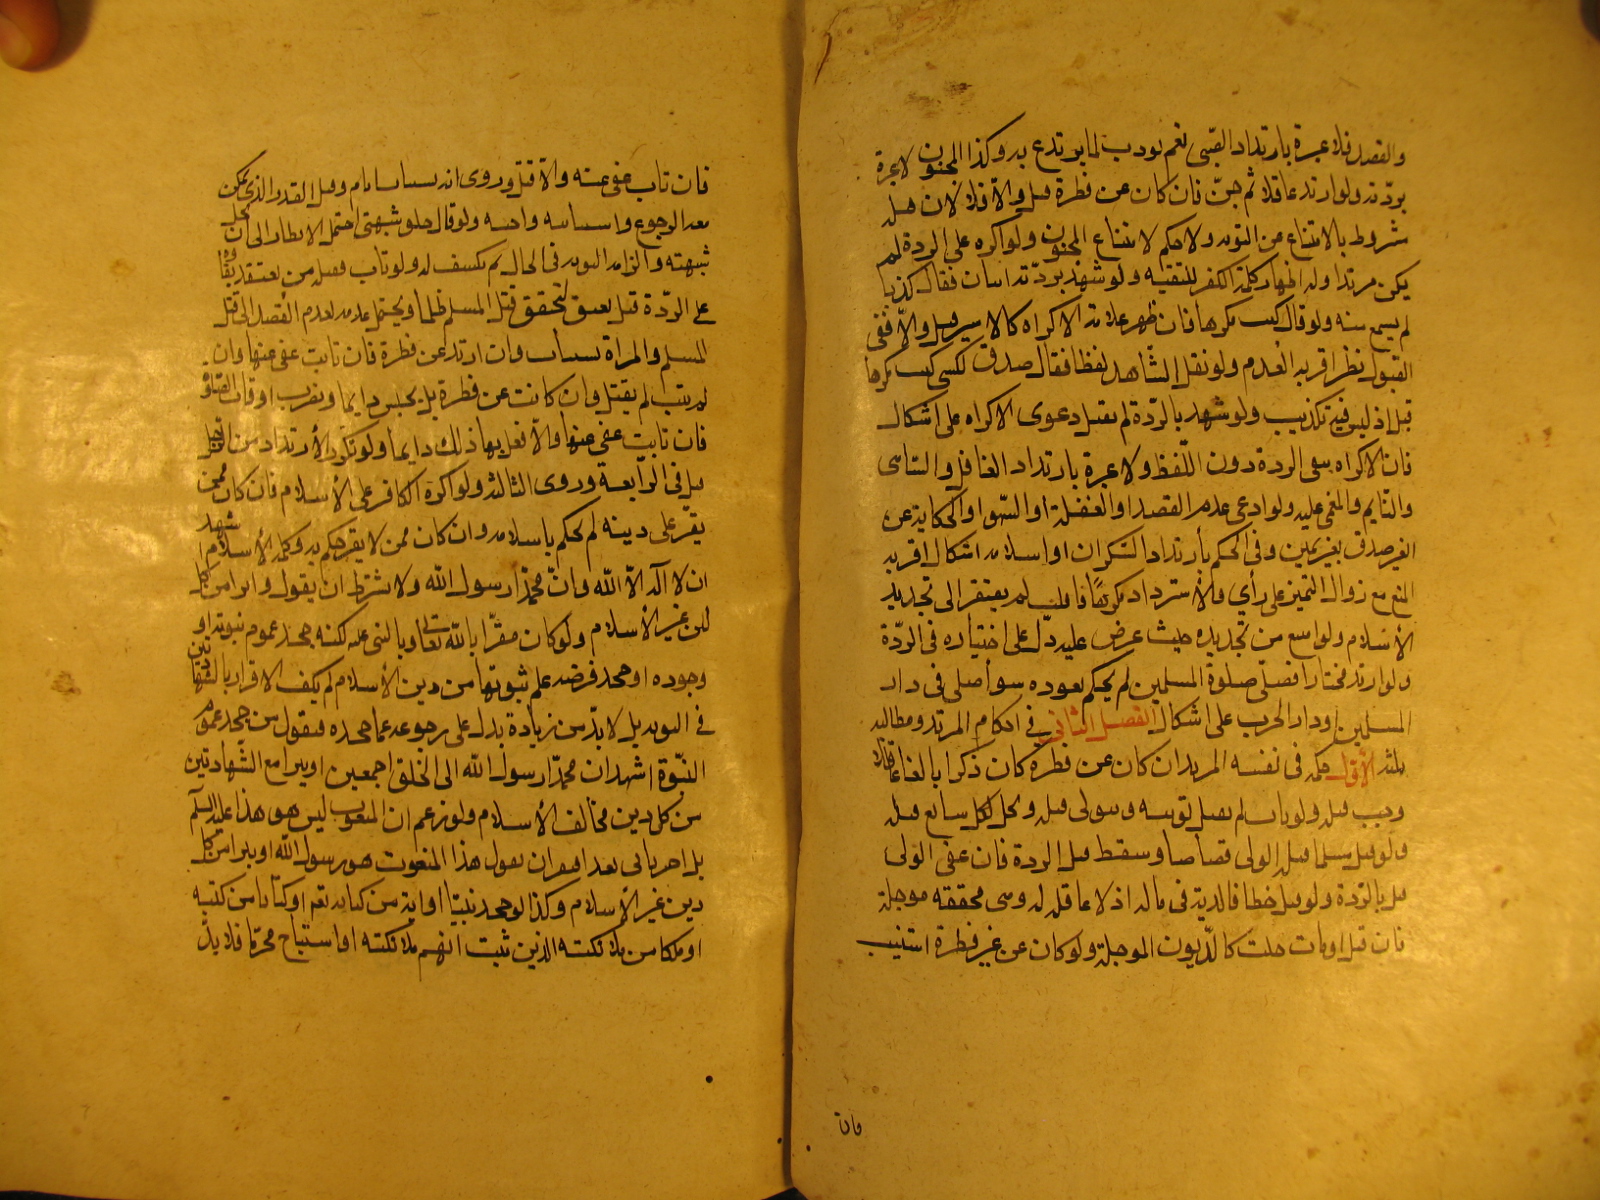 والقصد فلا عبرة بارتداد الصبي نعم يودب لما يرتدع به وكذا المجنون لا عبرة
بردته ولو ارتد عاقلا ثم جن فان كان عن فطرة قتل والا فلا لان قتله
مشروط بالامتناع عن التوبة ولا حكم لامتناع المجنون ولو اكره على الردة لم
يكن مرتدا وله اظهار كلمة الكفر للتقية ولو شهد بردته اثنان فقال كذبا
لم يسمع منه ولو قال كنت مكرها فان ظهر علامة الاكراه كالاسير قبل والا ففي
القبول نظر اقربه العدم ولو نقل الشاهد لفظا فقال صدق لكني كنت مكرها
قبل اذ ليس فيه تكذيب ولو شهد بالردة لم يقبل دعوى الاكراه على اشكال
فان الاكراه ينفي الردة دون اللفظ ولا عبرة بارتداد الغافل والساهي
والنايم والمغمى عليه ولو ادعى عدم القصد او الغفلة او السهو او الحكاية عن
الغير صدق بغير يمين وفي الحكم بارتداد السكران او اسلامه اشكال اقربه
المنع مع زوال التميز على رأي والاسترداد مكرها فافلت لم يفتقر الى تجديد
الاسلام ولو امتنع من تجديده حيث عرض عليه دل على اختياره في الردة
ولو ارتد مختارا فصلى صلوة المسلمين لم يحكم بعوده سواء صلى في دار
المسلمين او دار الحرب على اشكال الفصل الثاني في احكام المرتد ومطالبه
ثلثة الاول حكمه في نفسه المرتد ان كان عن فطرة كان ذكرا بالغا عاقلا
وجب قتله ولو تاب لم يقبل توبته ويتولى قتله ويحل لكل سامع قتله
ولو قتل مسلما قتله الولي قصاصا وسقط قتل الردة فان عفى الولي
قتل بالردة ولو قتل خطا فالدية في ماله اذ لا عاقلة له وهي مخففة موجلة
فان قتل او مات حلت كالديون الموجلة ولو كان عن غير فطرة استتيب
فان
فان تاب عفى عنه والا قتل وروى انه يستتاب ايام وقيل القدر الذي يمكن
معه الرجوع واستتابته واجبة ولو قال حلوا شبهتي احتمل الانظار الى ان تحل
شبهته والزامه التوبة في الحال ثم تكشف له ولو تاب فقتله من يعتقد بقاءه
على الردة قيل يقتل لتحقق قتل المسلم ظلما ويحتمل عدمه لعدم القصد الى قتل
المسلم والمراة تستتاب وان ارتدت عن فطرة فان تابت عفى عنها وان
لم تتب لم يقتل وان كانت عن فطرة بل يحبس دايما وتضرب اوقات الصلوة
فان تابت عفى عنها والا فعل بها ذلك دايما ولو تكرر الارتداد من الرجل
قتل في الرابعة وروى الثالثة ولو اكره الكافر على الاسلام فان كان ممن
يقر على دينه لم يحكم باسلامه وان كان ممن لا يقر حكم به وكلمة الاسلام اشهد
ان لا اله الا الله وان محمدا رسول الله ولا يشترط ان يقول وابرا من كل
دين غير الاسلام ولو كان مقرا بالله تعالى وبالنبي عم لكنه جحد عموم نبوته او
وجوده او جحد فرضه علم ثبوتها من دين الاسلام لم يكف الاقرار بالشهادتين
في التوبة بل لا بد من زيادة يدل على رجوعه عما جحده فيقول من جحد عموم
النبوة اشهد ان محمدا رسول الله الى الخلق اجمعين او يبرا مع الشهادتين
من كل دين مخالف الاسلام ولو زعم ان المبعوث ليس هو هذا عليه السلم
بل اخر ياتي بعد افتقر ان يقول هذا المبعوث هو رسول الله او يبرا من كل
دين غير الاسلام وكذا لو جحد نبيا او اية من كتابه تعالى او كتابا من كتبه
او ملكا من ملائكته الذين ثبت انهم ملائكته او استباح محرما فلا بد